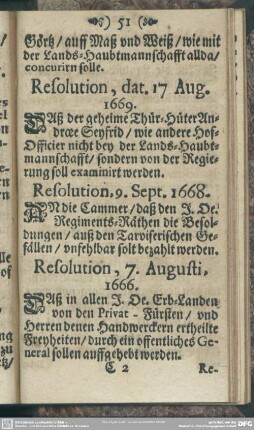 51
Görtz / auff Maß vnd Weiß / wie mit
der Lands-Haubtmannschafft allda /
concurirn solle.
Resolution, dat. 17 Aug.
1669.
DAß der geheime Thür-Hüter An-
dreæ Seyfrid / wie andere Hof-
Officier nicht bey der Lands-Haubt-
mannschafft / sondern von der Regie-
rung soll examinirt werden.
Resolution. 9. Sept. 1668.
AN die Cammer / daß den J. Oe.
Regiments-Räthen die Besol-
dungen / auß den Tarviserischen Ge-
fällen / vnfehlbar solt bezahlt werden.
Resolution, 7. Augusti,
1666.
DAß in allen J. Oe. Erb-Landen
von den Privat-Fürsten / vnd
Herren denen Handwerckern ertheilte
Freyheiten / durch ein offentliches Ge-
neral sollen auffgehebt werden.
C 2 Re-